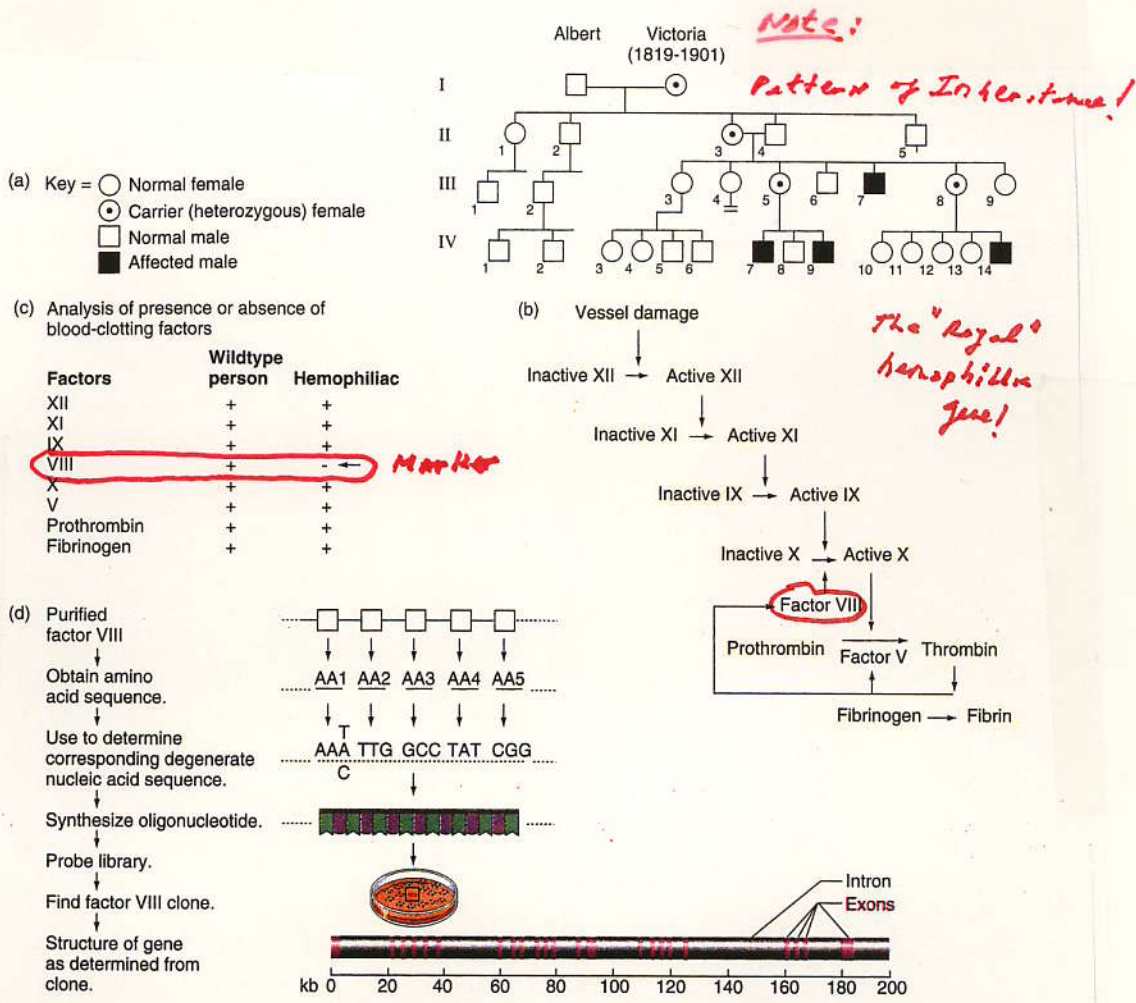 Note:
Pattern of Inheritance!
Albert
Victoria
(1819-1901)
I
II
1
2
3
4
5
III
1
2
3
4
5
6
7
8
9
IV
1
2
3
4
5
6
7
8
9
10
11
12
13
14
(a) Key =
Normal female
Carrier (heterozygous) female
Normal male
Affected male
(c) Analysis of presence or absence of
blood-clotting factors
Factors Wildtype person Hemophiliac
XII + +
XI + +
IX + +
VIII + - ←
X + +
V + +
Prothrombin + +
Fibrinogen + +
(b)
Vessel damage
Inactive XII → Active XII
Inactive XI → Active XI
Inactive IX → Active IX
Inactive X → Active X
Factor VIII
Prothrombin → Thrombin
Factor V
Fibrinogen → Fibrin
The "Royal"
hemophilia
gene!
(d) Purified
factor VIII
Obtain amino
acid sequence.
Use to determine
corresponding degenerate
nucleic acid sequence.
Synthesize oligonucleotide.
Probe library.
Find factor VIII clone.
Structure of gene
as determined from
clone.
AA1 AA2 AA3 AA4 AA5
T
AAA TTG GCC TAT CGG
C
Intron
Exons
kb 0 20 40 60 80 100 120 140 160 180 200